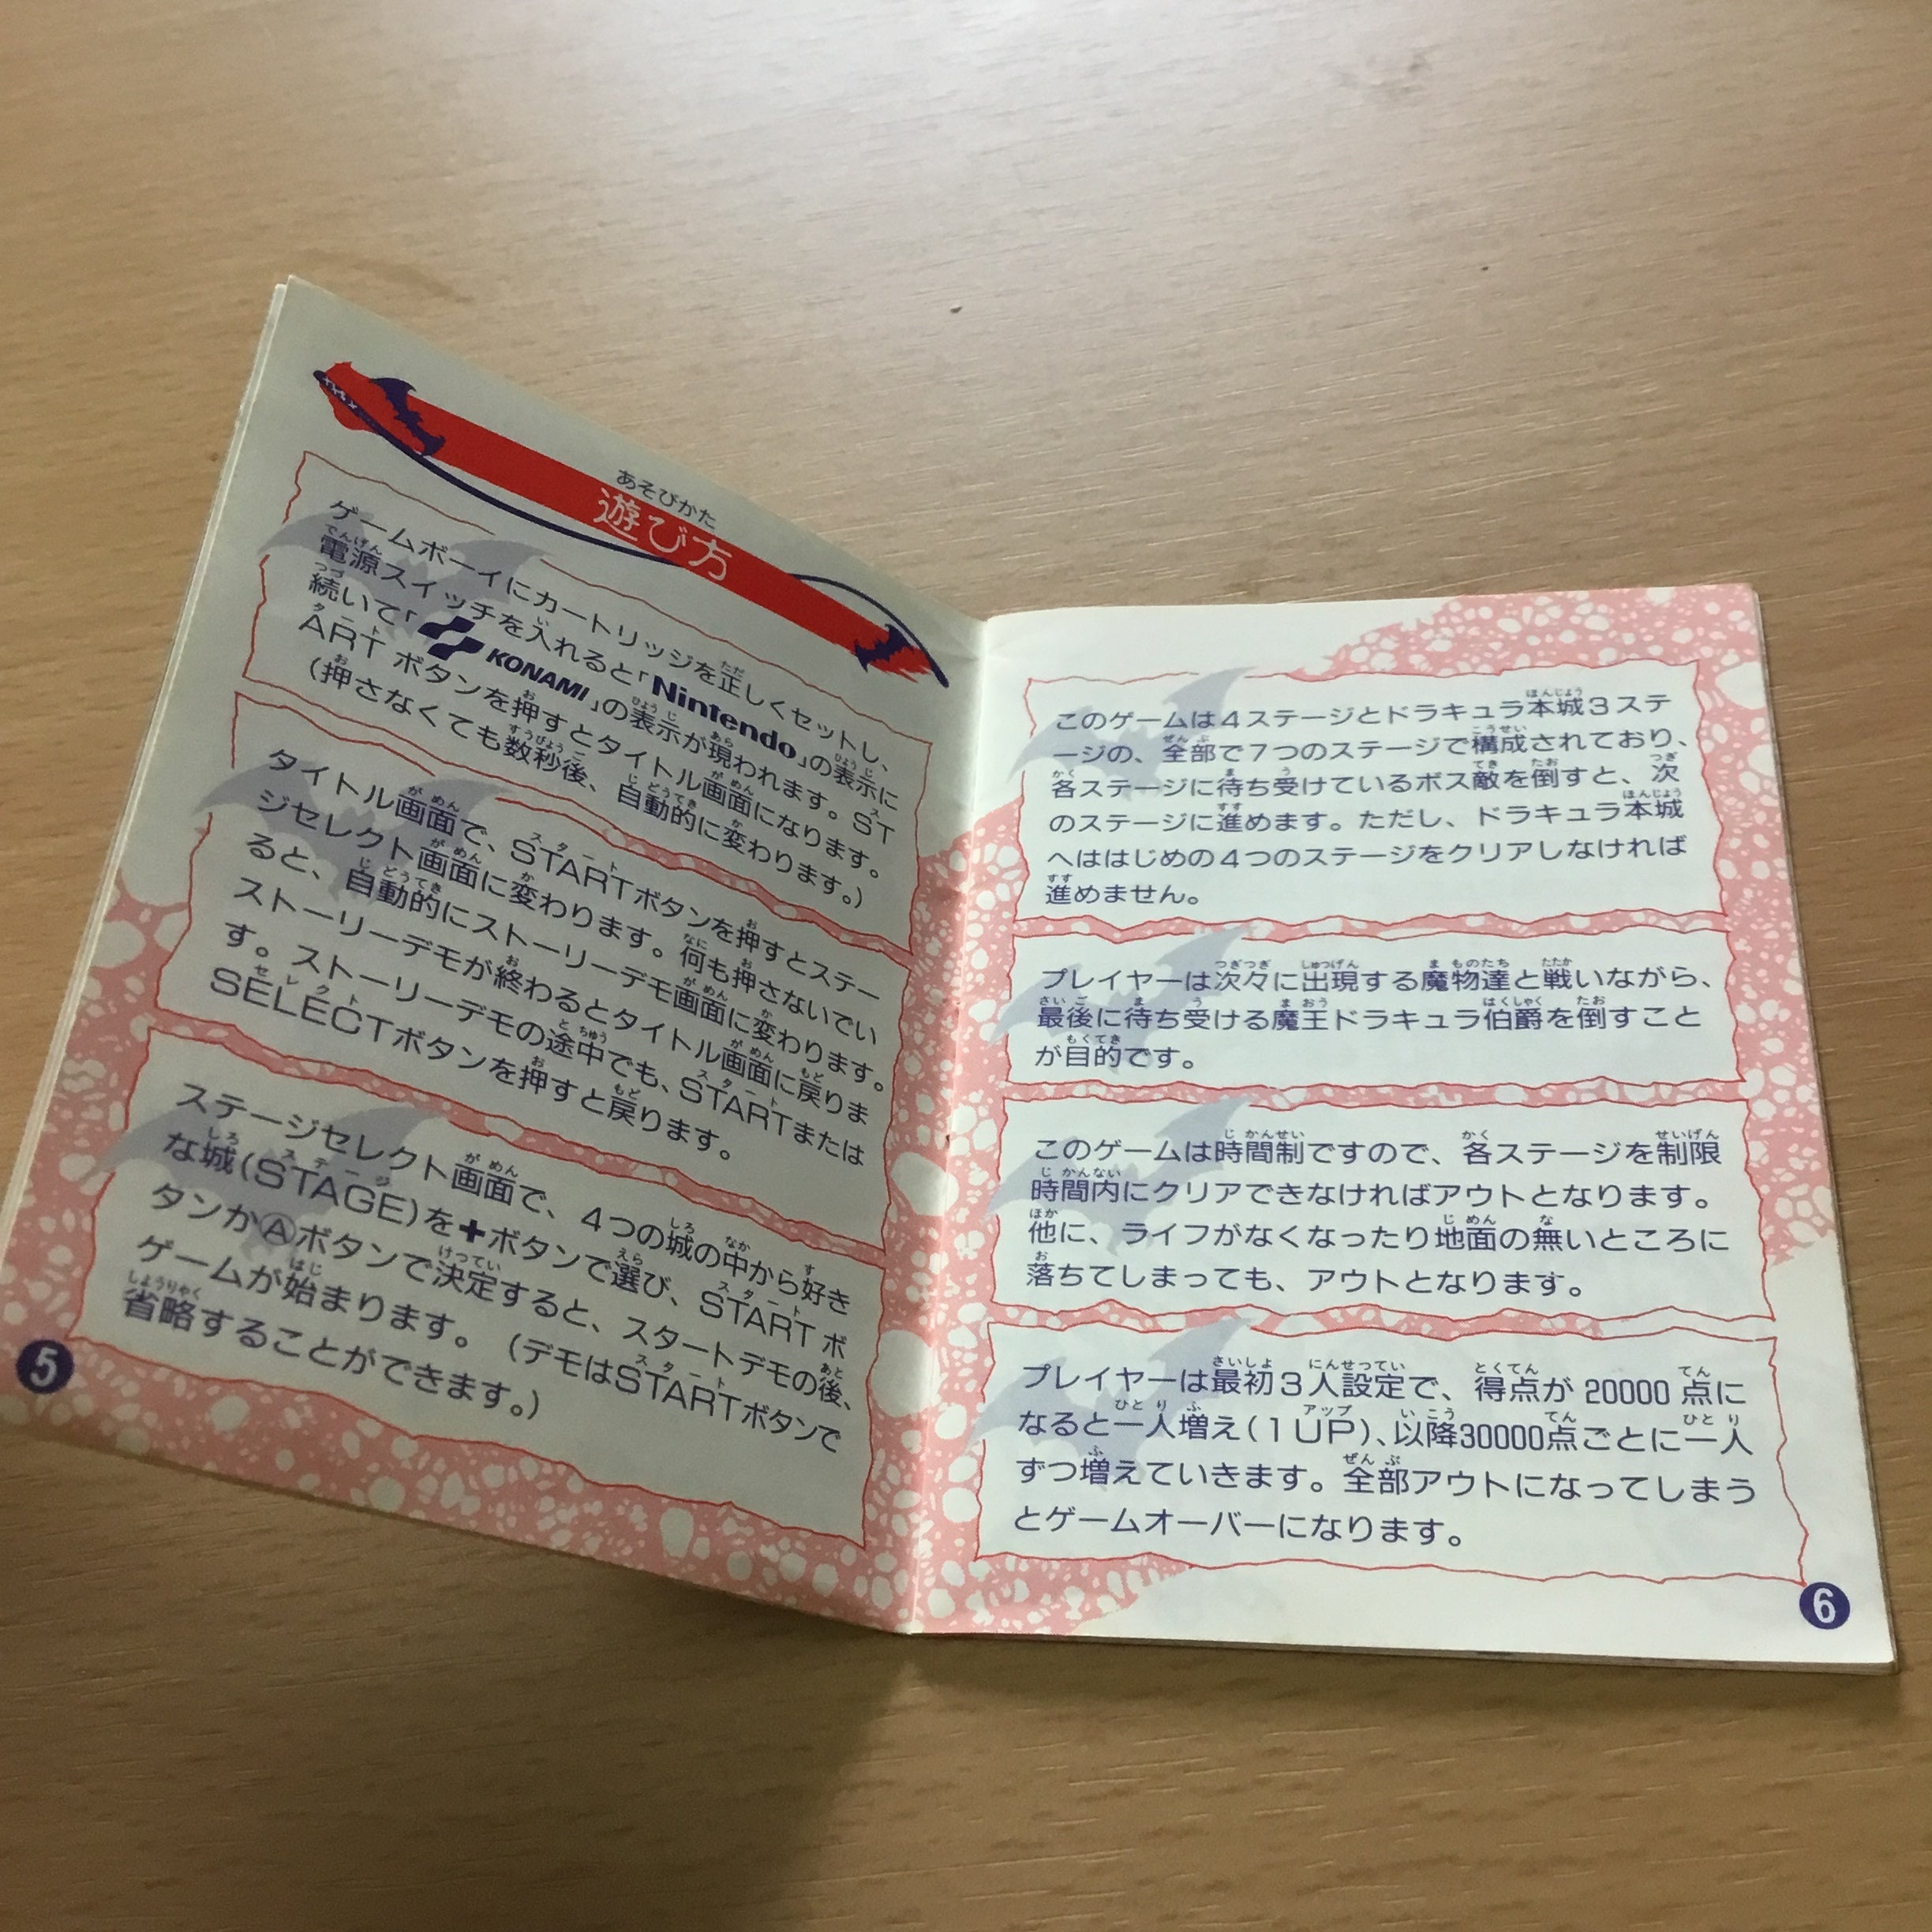 あそびかた
遊び方
ゲームボーイにカートリッジを正しくセットし、
電源スイッチを入れると「Nintendo」の表示に
続いて「KONAMI」の表示が現われます。ST
ARTボタンを押すとタイトル画面になります。
(押さなくても数秒後、自動的に変わります。)
タイトル画面で、STARTボタンを押すとステー
ジセレクト画面に変わります。何も押さないでい
ると、自動的にストーリーデモ画面に変わります。
ストーリーデモが終わるとタイトル画面に戻りま
す。ストーリーデモの途中でも、STARTまたは
SELECTボタンを押すと戻ります。
ステージセレクト画面で、4つの城の中から好き
な城(STAGE)を+ボタンで選び、STARTボ
タンかⒶボタンで決定すると、スタートデモの後、
ゲームが始まります。(デモはSTARTボタンで
省略することができます。)
5
このゲームは4ステージとドラキュラ本城3ステ
ージの、全部で7つのステージで構成されており、
各ステージに待ち受けているボス敵を倒すと、次
のステージに進めます。ただし、ドラキュラ本城
へははじめの4つのステージをクリアしなければ
進めません。
プレイヤーは次々に出現する魔物達と戦いながら、
最後に待ち受ける魔王ドラキュラ伯爵を倒すこと
が目的です。
このゲームは時間制ですので、各ステージを制限
時間内にクリアできなければアウトとなります。
他に、ライフがなくなったり地面の無いところに
落ちてしまっても、アウトとなります。
プレイヤーは最初3人設定で、得点が20000点に
なると一人増え(1UP)、以降30000点ごとに一人
ずつ増えていきます。全部アウトになってしまう
とゲームオーバーになります。
6